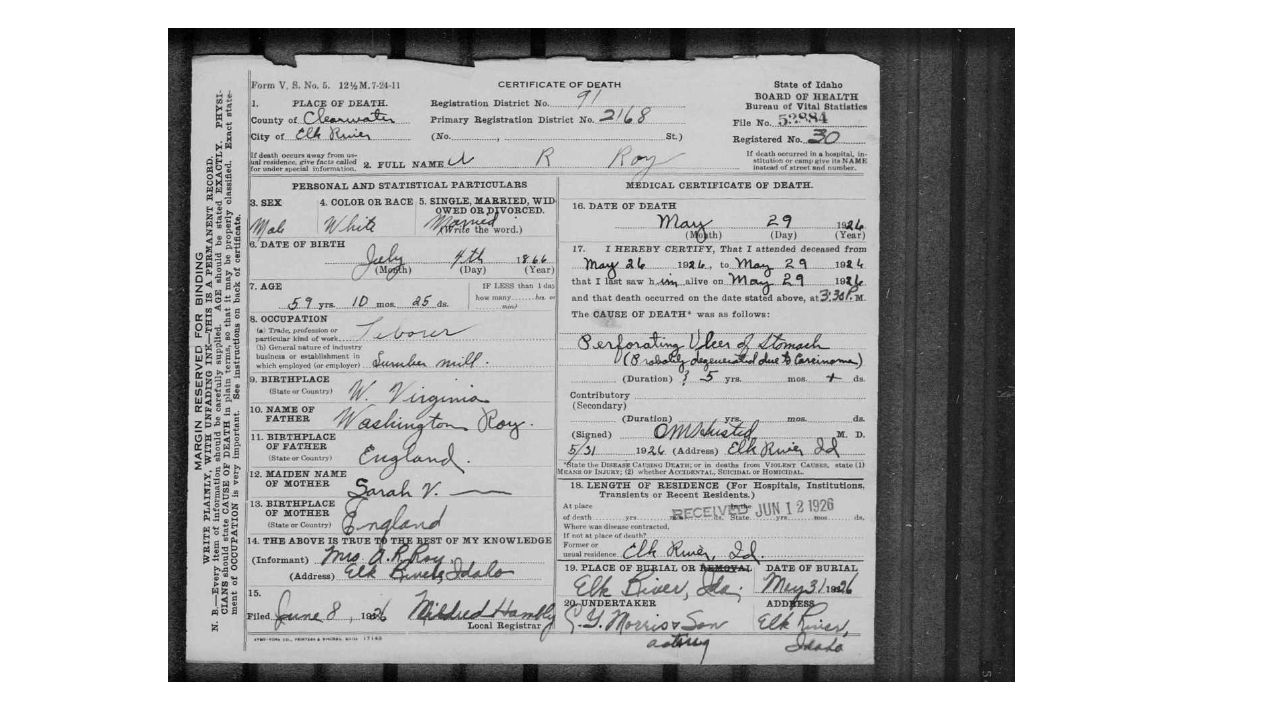 Form V. S. No. 5. 12½ M. 7-24-11
CERTIFICATE OF DEATH
State of Idaho
BOARD OF HEALTH
Bureau of Vital Statistics
File No. 52884
Registered No. 30
If death occurred in a hospital, institution or camp give its NAME instead of street and number.
1. PLACE OF DEATH.
County of Clearwater
City of Elk River
Registration District No. 91
Primary Registration District No. 2168
(No. , St.)
If death occurs away from usual residence, give facts called for under special information.
2. FULL NAME R Roy
PERSONAL AND STATISTICAL PARTICULARS
3. SEX
Male
4. COLOR OR RACE
White
5. SINGLE, MARRIED, WIDOWED OR DIVORCED.
Married
(Write the word.)
6. DATE OF BIRTH
July 4th 1866
(Month) (Day) (Year)
7. AGE
59 yrs. 10 mos. 25 ds.
IF LESS than 1 day
how many hrs. or
min?
8. OCCUPATION
(a) Trade, profession or particular kind of work
(b) General nature of industry business or establishment in which employed (or employer) Lumber mill.
9. BIRTHPLACE
(State or Country) W. Virginia
10. NAME OF FATHER
Washington Roy.
11. BIRTHPLACE OF FATHER
(State or Country) England.
12. MAIDEN NAME OF MOTHER
Sarah V. —
13. BIRTHPLACE OF MOTHER
(State or Country) England
14. THE ABOVE IS TRUE TO THE BEST OF MY KNOWLEDGE
(Informant) Mrs. Roy
(Address) Elk River, Idaho
15.
Filed June 8, 1926 Mildred Hambly
Local Registrar
MEDICAL CERTIFICATE OF DEATH.
16. DATE OF DEATH
May 29 1926
(Month) (Day) (Year)
17. I HEREBY CERTIFY, That I attended deceased from
May 26 1926, to May 29 1926
that I last saw him alive on May 29 1926
and that death occurred on the date stated above, at 3:30 P. M.
The CAUSE OF DEATH* was as follows:
Perforating Ulcer of Stomach
(Probably degenerated due to Carcinoma)
(Duration) ? 5 yrs. mos. + ds.
Contributory
(Secondary)
(Duration) yrs. mos. ds.
(Signed) M. D.
5/31 1926 (Address) Elk River Id
*State the DISEASE CAUSING DEATH; or in deaths from VIOLENT CAUSES, state (1) MEANS OF INJURY; (2) whether ACCIDENTAL, SUICIDAL or HOMICIDAL.
18. LENGTH OF RESIDENCE (For Hospitals, Institutions, Transients or Recent Residents.)
At place of death yrs. ds. In the State yrs. mos. ds.
RECEIVED JUN 12 1926
Where was disease contracted,
If not at place of death?
Former or usual residence. Elk River, Id.
19. PLACE OF BURIAL OR REMOVAL
Elk River, Ida.
DATE OF BURIAL
May 31 1926
20. UNDERTAKER
Morris & Son
acting
ADDRESS
Elk River, Idaho
MARGIN RESERVED FOR BINDING
WRITE PLAINLY, WITH UNFADING INK—THIS IS A PERMANENT RECORD.
N. B.—Every item of information should be carefully supplied. AGE should be stated EXACTLY. PHYSICIANS should state CAUSE OF DEATH in plain terms, so that it may be properly classified. Exact statement of OCCUPATION is very important. See instructions on back of certificate.